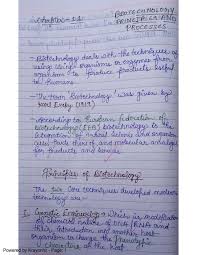 Chapter-11
BIOTECHNOLOGY
PRINCIPLES AND
PROCESSES
- Biotechnology deals with the techniques of
using living organisms or enzymes from
organisms to produce products useful
to humans
- The term 'Biotechnology' was given by
Karl Ereky (1919)
- According to European federation of
biotechnology (EFB) biotechnology is the
integration of natural science and organisms
cells, parts thereof and molecular analogues
for products and services
Principles of Biotechnology
The two core techniques developed modern
biotechnology are
1. Genetic Engineering → which is modification
of chemical nature of DNA/RNA and
their introduction into another host
organism to change the Phenotypic
characters of host
Powered by Krayonnz - Page: